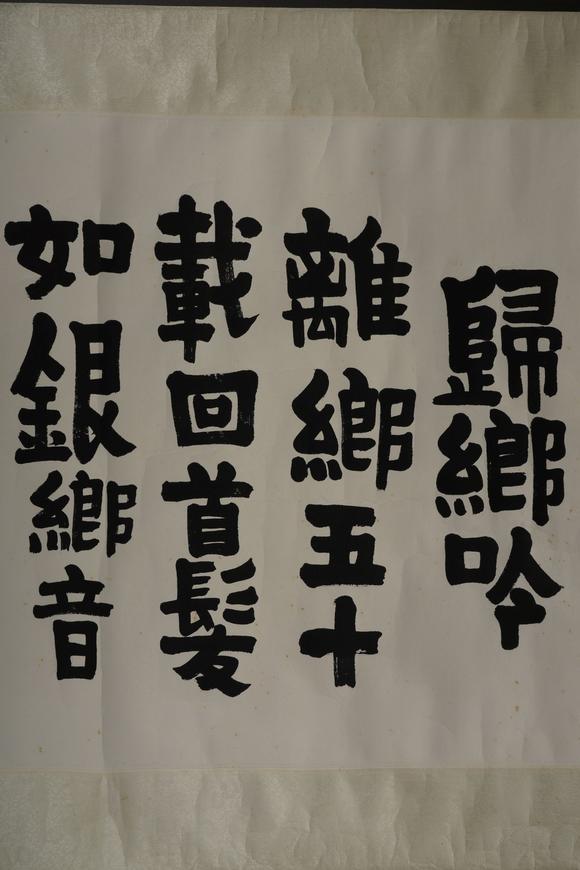 歸鄉吟
離鄉五十
載回首髮
如銀鄉音